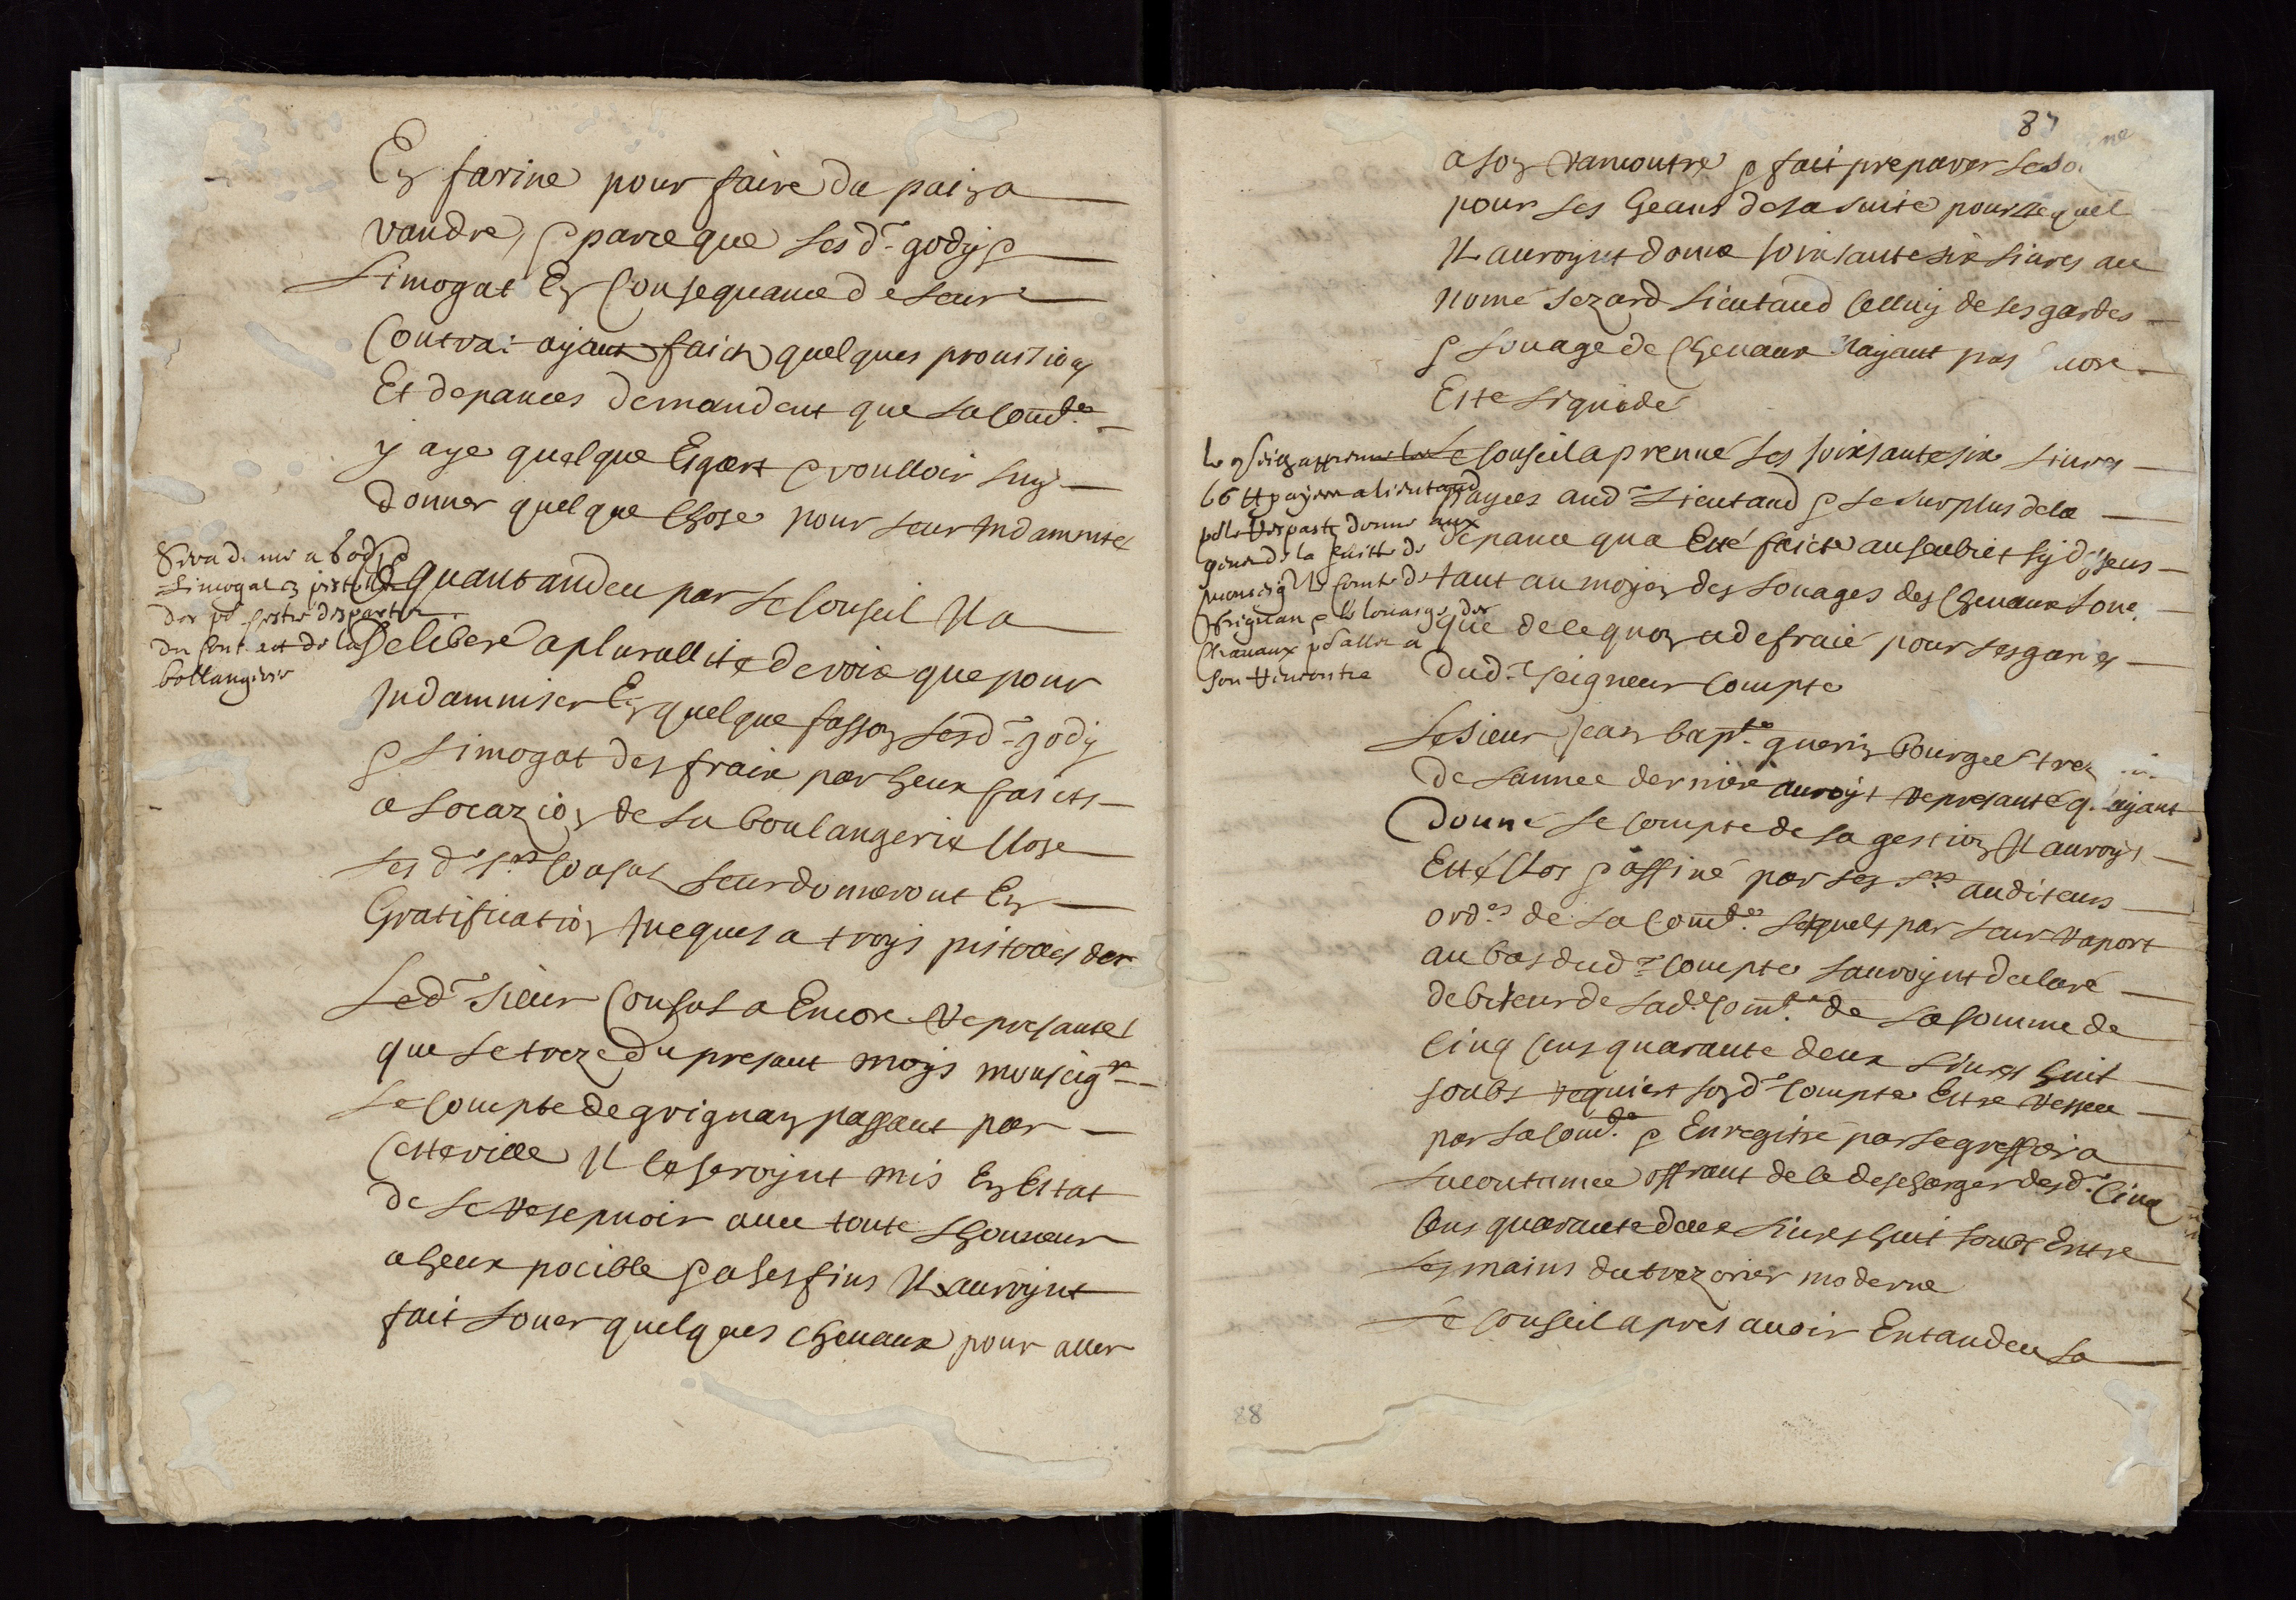 En farine pour faire du pain a
vandre, & parce que les d.^ts gody &
Limogat en consequance de leur
Contrat ayant faict quelques provition
Et depances demandent que la com.^te
y aye quelque Egart & voulloir luy
donner quelque chose pour leur Indamnité
sera donné a Gody
Limogat 3 pistolles
dor po.^r estre despartis
du contract de la
bollangerie
Ce quant andeu par le Conseil Il a
deliberé a plurallité de voix que pour
Indamniser En quelque fasson lesd.^ts gody
& Limogat des fraix par heux faicts
a locazion de la boulangerie close
les d.^ts s.^rs Consuls leur donneront En
Gratification Jueques a troys pistolles dor
Led.^t sieur Consul a Encore represanté
que le treze du presant moys monseig.^r
Le Compte de grignan passant par
Cette ville Il ce seroynt mis En Estat
de le resepvoir avec toute lhonneur
a heux pocible & a ses fins Il auroynt
fait louer quelques chevaux pour aller
87
a son rancontre & fait preparer le
pour les geans de sa suite pour lequel
Il auroynt donné soixante six livres au
nomé Jezard Lieutaud celluy de ses gardes
& louage de chevaux nayant pas encore
Esté liquidé
le conseil appreuve les
66 ll payees a lieutaud
po.^r le repast donné aux
gens de la suitte de
monseig.^r le comte de
Grignan & le louage des
chevaux po.^r aller a
son rencontre
Le Conseil a preuvé les soixante six livres
payees aud.^t Lieutaud & le surplus de la
depance qua Esté faicte au seubiet sy d.^t sens
tant au moyen des louages des chevaux loue
que de le quon a defraié pour les gardes
dud.^t seigneur Compte
Le sieur Jean bap.^te guerin bourgeois trez
de lannee derniere auroyt represanté q. ayant
Donné le Compte de sa gestion Il auroyt
Esté clos & affiné par les s.^rs auditeurs
ord.^res de la Com.^te lesquels par leur raport
au bas dud.^t Compte lauroynt declaré
debiteur de lad.^te Com.^té de la somme de
Cinq Cens quarante deux livres huit
soubs requiert son d.^t Compte Estre
par la Com.^té & Enregitré par le greffier a
la coutumee offrant de le descharger desd.^ts Cinq
Cens quarante deux livres huit soubs Entre
les mains du trezorier moderne
Le Conseil apres avoir Entandeu la
88